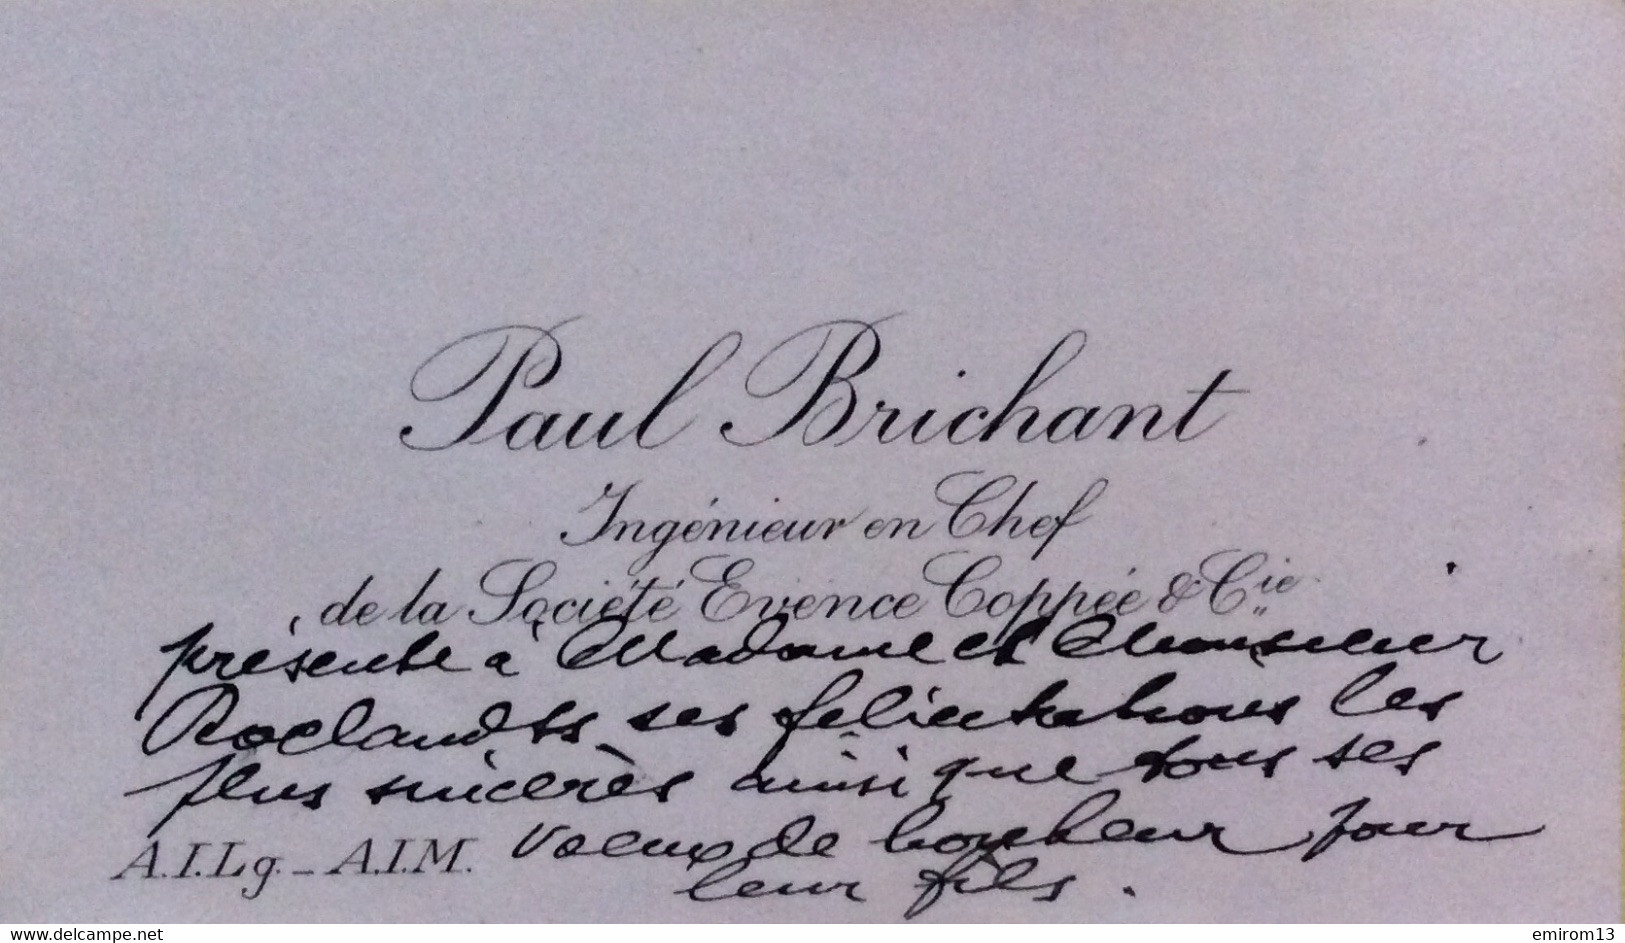 Paul Brichant
Ingénieur en Chef
de la Société Evence Coppée & Cie
présente à Madame et Monsieur
Roelandts ses félicitations les
plus sincères ainsi que tous ses
A.I.Lg. - A.I.M. voeux de bonheur pour
leur fils.
www.delcampe.net
emirom13